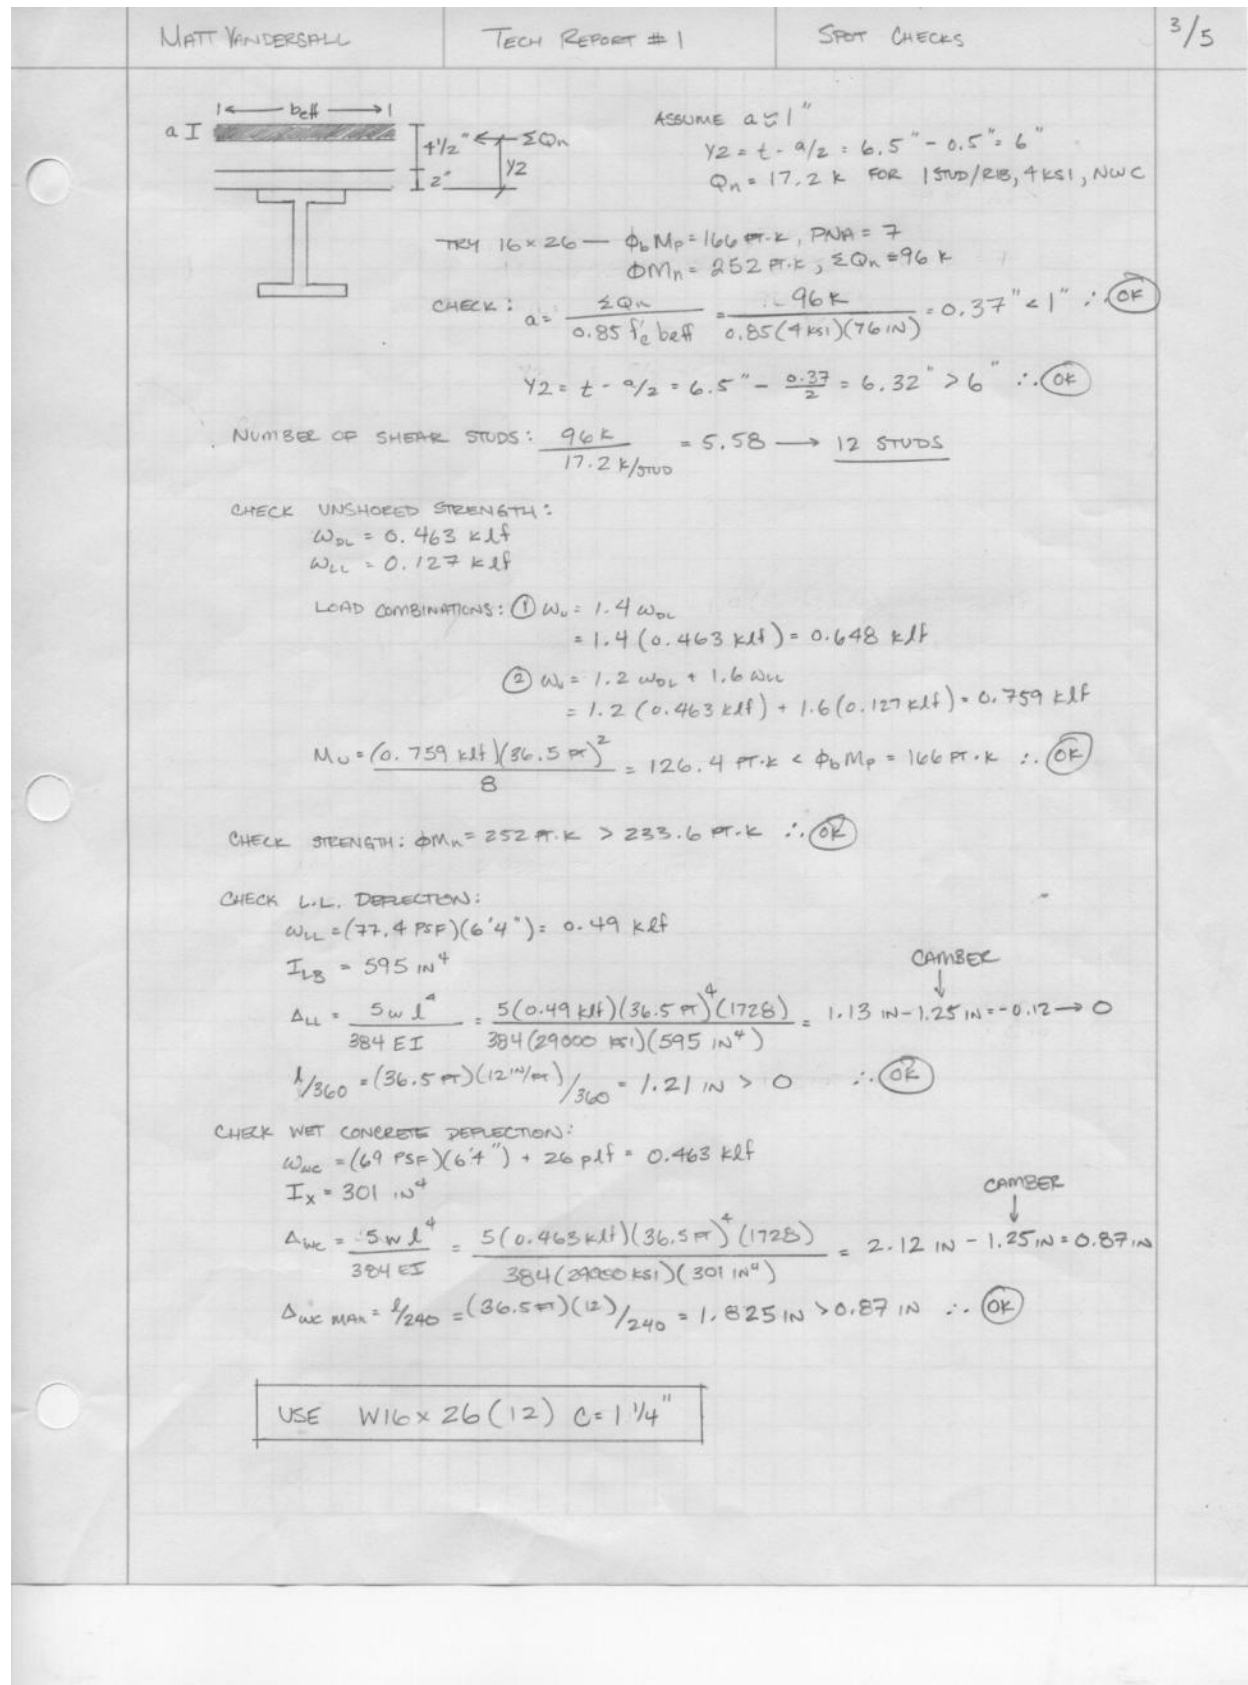 MATT VANDERSALL TECH REPORT # 1 SPOT CHECKS 3/5
beff
a
4 1/2" ΣQn
Y2
2"
ASSUME a ≈ 1"
Y2 = t - a/2 = 6.5" - 0.5" = 6"
Qn = 17.2 k FOR 1 STUD/RIB, 4 KSI, NWC
TRY 16×26 — ϕbMp = 166 FT·K, PNA = 7
ϕMn = 252 FT·K, ΣQn = 96 K
CHECK: a = ΣQn / 0.85 f'c beff = 96K / 0.85(4 KSI)(76 IN) = 0.37" < 1" ∴ OK
Y2 = t - a/2 = 6.5" - 0.37/2 = 6.32" > 6" ∴ OK
NUMBER OF SHEAR STUDS: 96 K / 17.2 K/STUD = 5.58 → 12 STUDS
CHECK UNSHORED STRENGTH:
ωDL = 0.463 klf
ωLL = 0.127 klf
LOAD COMBINATIONS: ① ωu = 1.4 ωDL
= 1.4 (0.463 klf) = 0.648 klf
② ωu = 1.2 ωDL + 1.6 ωLL
= 1.2 (0.463 klf) + 1.6 (0.127 klf) = 0.759 klf
Mu = (0.759 klf)(36.5 FT)² / 8 = 126.4 FT·K < ϕbMp = 166 FT·K ∴ OK
CHECK STRENGTH: ϕMn = 252 FT·K > 233.6 FT·K ∴ OK
CHECK L.L. DEFLECTION:
ωLL = (77.4 PSF)(6'4") = 0.49 klf
ILB = 595 IN⁴
CAMBER
ΔLL = 5wl⁴ / 384 EI = 5(0.49 klf)(36.5 FT)⁴(1728) / 384(29000 KSI)(595 IN⁴) = 1.13 IN - 1.25 IN = -0.12 → 0
l/360 = (36.5 FT)(12 IN/FT)/360 = 1.21 IN > 0 ∴ OK
CHECK WET CONCRETE DEFLECTION:
ωwc = (69 PSF)(6'4") + 26 plf = 0.463 klf
Ix = 301 IN⁴
CAMBER
Δwc = 5wl⁴ / 384 EI = 5(0.463 klf)(36.5 FT)⁴(1728) / 384(29000 KSI)(301 IN⁴) = 2.12 IN - 1.25 IN = 0.87 IN
Δwc MAX = l/240 = (36.5 FT)(12)/240 = 1.825 IN > 0.87 IN ∴ OK
USE W16×26 (12) C = 1 1/4"